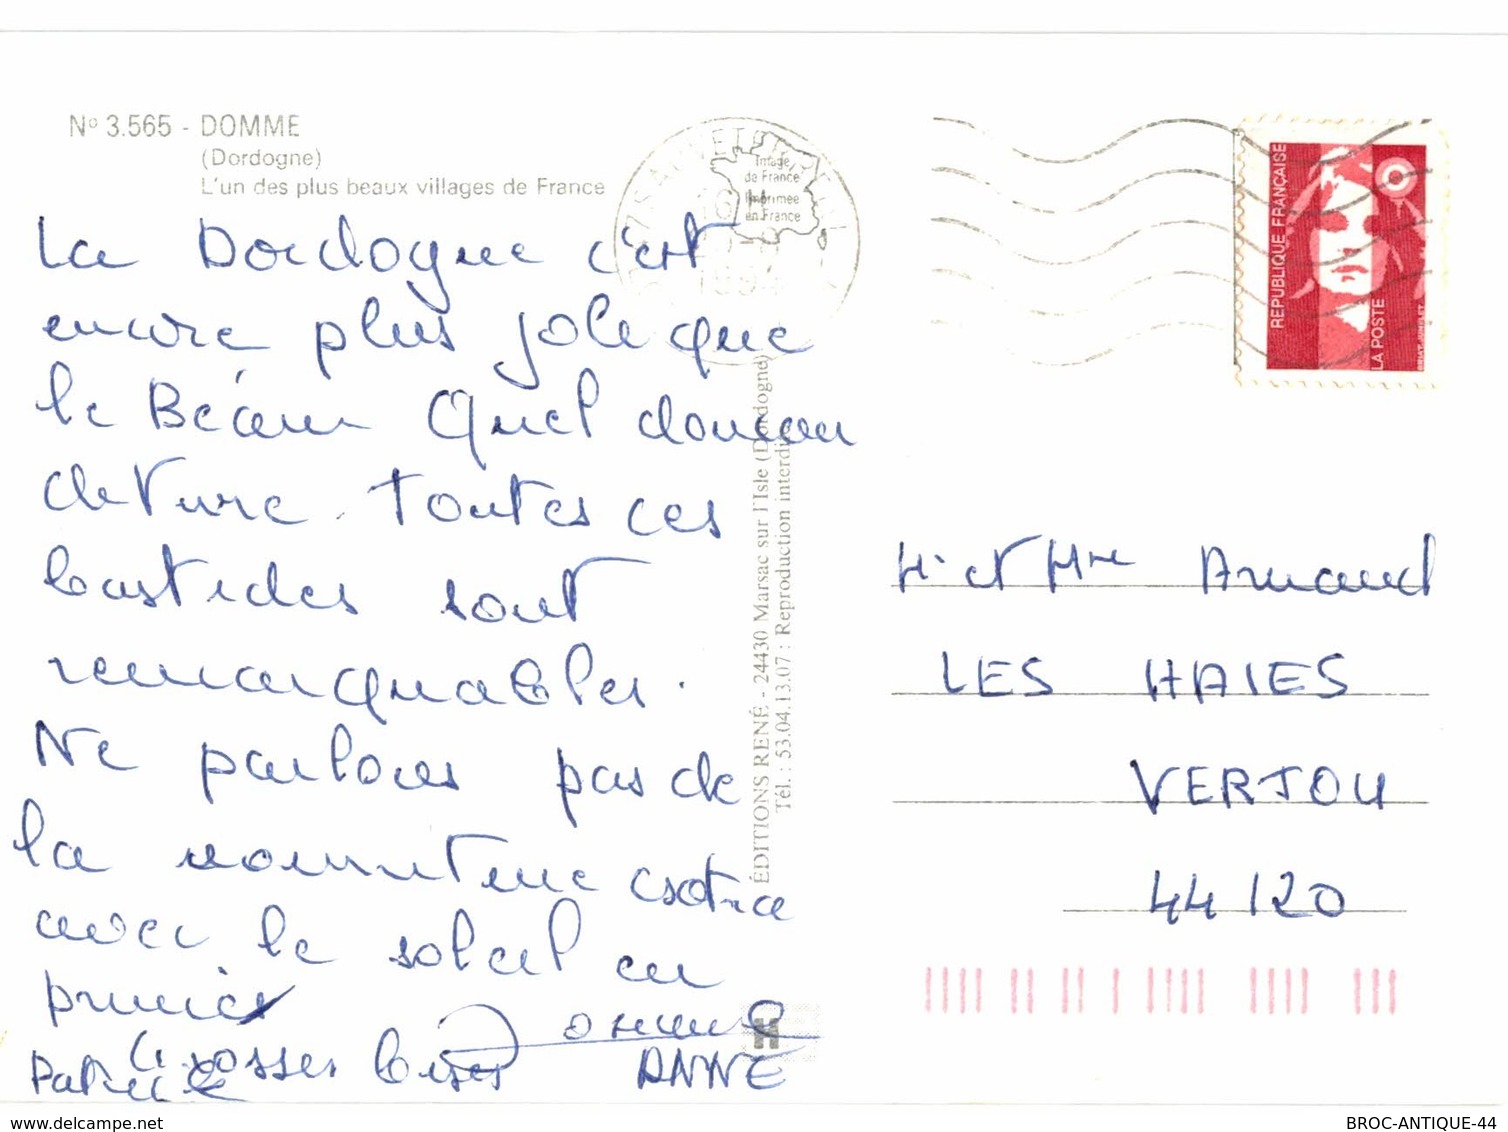 N° 3.565 - DOMME
(Dordogne)
L'un des plus beaux villages de France
Image
de France
Imprimée
en France
16 H
1994
REPUBLIQUE FRANÇAISE
LA POSTE
La Dordogne c'est
encore plus jolie que
le Béarn Quel douceur
de vivre. Toutes ces
bastides sont
remarquables.
Ne parlons pas de
la nourriture extra
avec le soleil en
prime
Grosses bises
Patrick
ANNE
ÉDITIONS RENÉ - 24430 Marsac sur l'Isle (Dordogne)
Tél. : 53.04.13.07 : Reproduction interdite
Mr et Mme Arnaud
LES HAIES
VERTOU
44120
delcampe.net
BROC-ANTIQUE-44